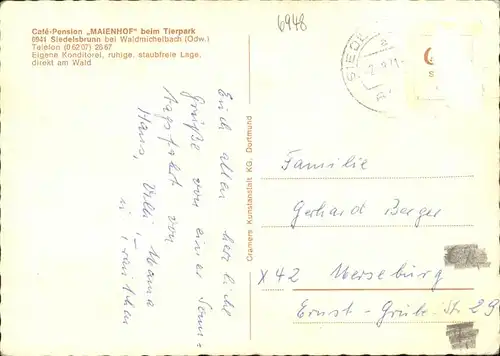 Café-Pension „MAIENHOF" beim Tierpark
6941 Siedelsbrunn bei Waldmichelbach (Odw.)
Telefon (0 62 07) 26 67
Eigene Konditorei, ruhige, staubfreie Lage,
direkt am Wald
6948
SIEDEL
Euch allen herzliche
Grüße von einer Sonn-
tagsfahrt von
Hans, Willi, Mama
u.
Cramers Kunstanstalt KG, Dortmund
Familie
Gerhard Berger
X 42 Merseburg
Ernst-Grube-Str. 29